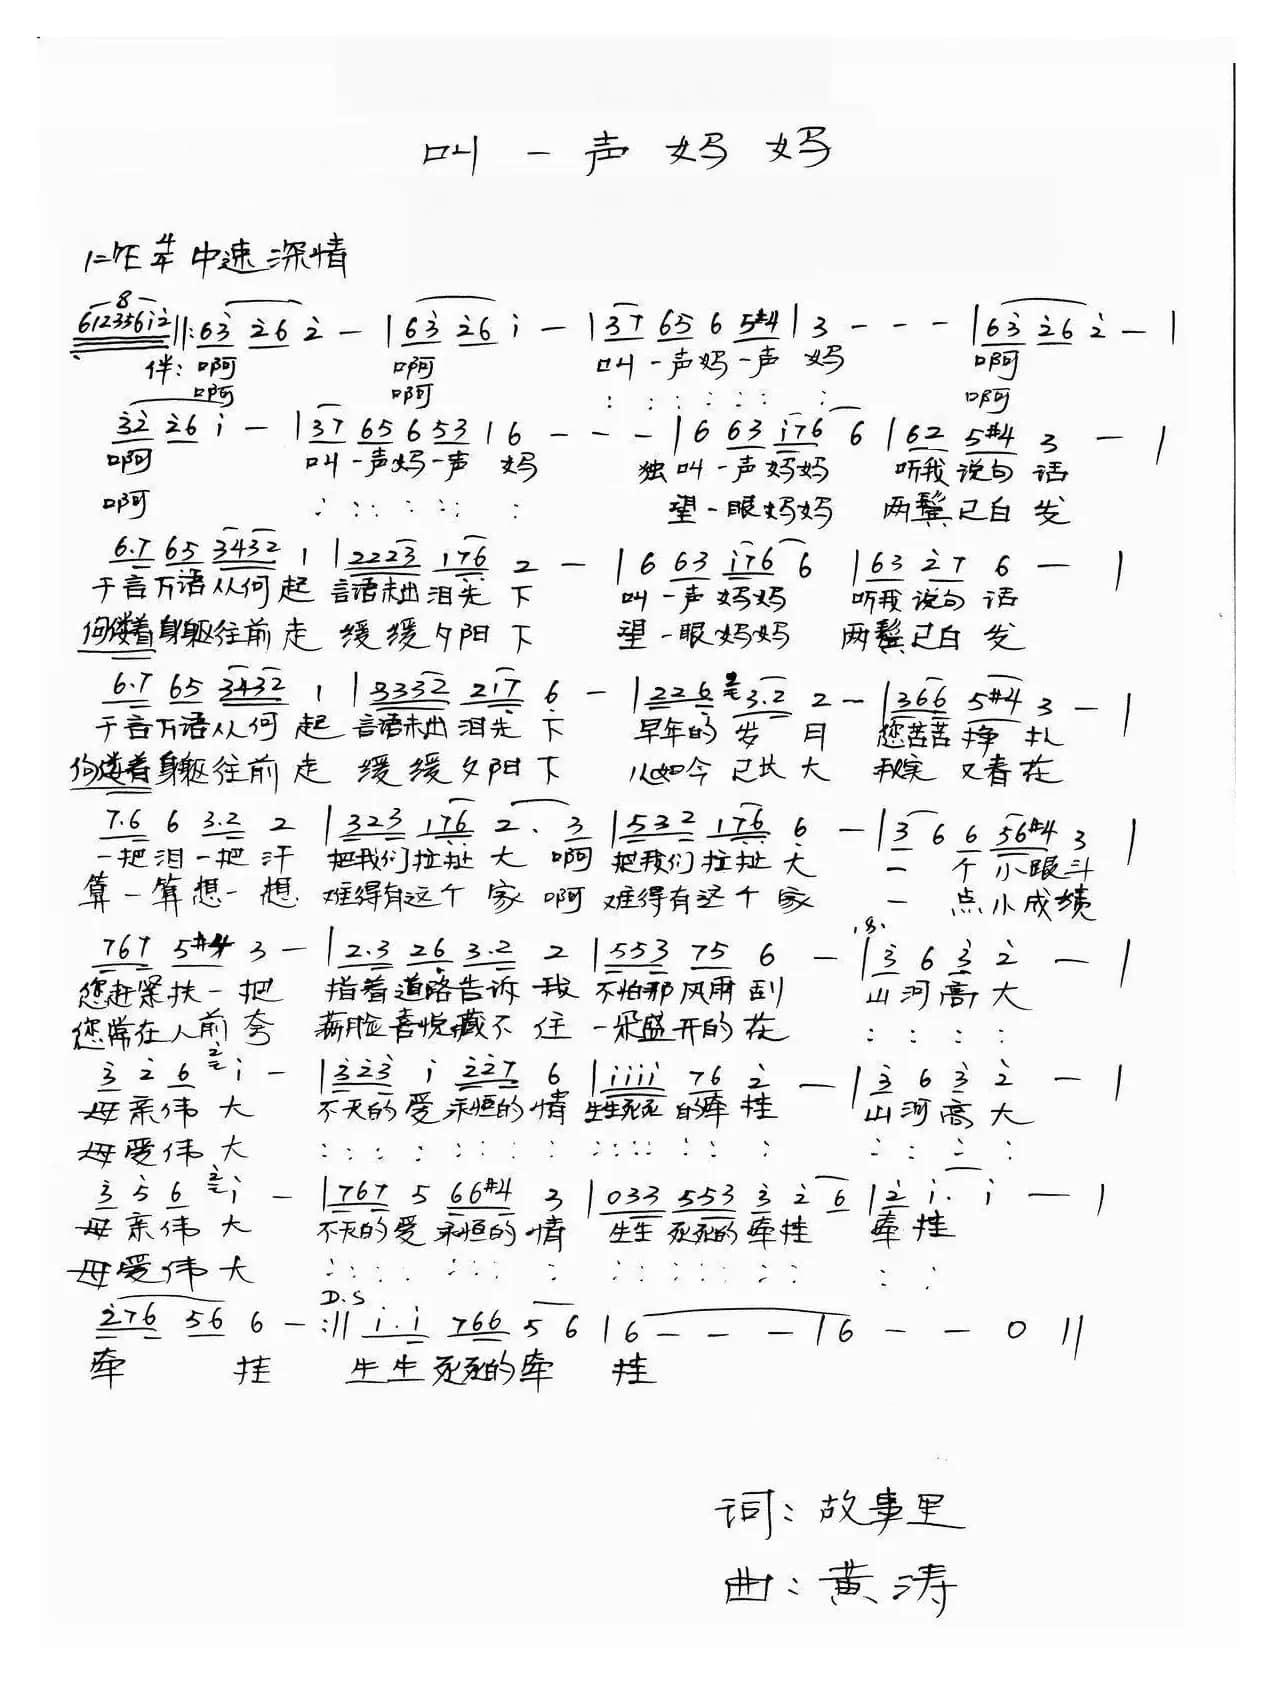 叫一声妈妈
1=♭E 4/4 中速深情
8
6123561̇2̇ ‖: 63̇ 2̇6 2̇ — | 63̇ 2̇6 1̇ — | 3̇7 65 6 5#4 | 3 — — — | 63̇ 2̇6 2̇ — |
伴: 啊 啊 叫一声妈一声 妈 啊
啊 啊 : : : : : : : 啊
3̇2̇ 2̇6 1̇ — | 3̇7 65 6 53 | 6 — — — | 6 63 1̇76 6 | 62 5#4 3 — |
啊 叫一声妈一声 妈 独 叫一声妈妈 听我说句话
啊 : : : : : : : 望一眼妈妈 两鬓已白发
6.7 65 3432 1 | 2223 176 2 — | 6 63 1̇76 6 | 63 2̇7 6 — |
千言万语从何起 言语未出泪先下 叫一声妈妈 听我说句话
佝偻着身躯往前走 缓缓夕阳下 望一眼妈妈 两鬓已白发
6.7 65 3432 1 | 3332 217 6 — | 226 3.2 2 — | 366 5#4 3 — |
千言万语从何起 言语未出泪先下 早年的岁月 您苦苦挣扎
佝偻着身躯往前走 缓缓夕阳下 从如今已长大 我 又春在
7.6 6 3.2 2 | 323 176 2. 3 | 532 176 6 — | 3 6 6 56#4 3 |
一把泪一把汗 把我们拉扯大 啊 把我们拉扯大 一个小跟斗
算一算想一想 难得有这个家 啊 难得有这个家 一点小成绩
767 5#4 3 — | 2.3 26 3.2 2 | 553 75 6 — | 3̇ 6 3̇ 2̇ — |
您赶紧扶一把 指着道路告诉我 不怕那风雨刮 山河高大
您常在人前夸 满脸喜悦藏不住 一朵盛开的花 : : : :
3̇ 2̇ 6 2̇ 1̇ — | 3̇2̇3̇ 1̇ 2̇2̇7 6 | 1̇1̇1̇1̇ 76 2̇ — | 3̇ 6 3̇ 2̇ — |
母亲伟大 不灭的爱 永恒的情 生生死死的牵挂 山河高大
母爱伟大 : : : : : : : : : : : : : : : : : : :
3̇ 5̇ 6 2̇ 1̇ — | 767 5 66#4 3 | 033 553 3̇ 2̇ 6 | 2̇ 1̇. 1̇ — |
母亲伟大 不灭的爱 永恒的情 生生死死的牵挂 牵挂
母爱伟大 : : : : : : : : : : : : : : : : :
D.S
2̇76 56 6 — :‖ 1̇.1̇ 766 5 6 | 6 — — — | 6 — — 0 ‖
牵 挂 生生死死的牵 挂
词：故事里
曲：黄涛